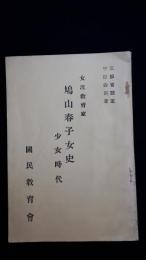 女流教育家
鳩山春子女史
少女時代
國民教育會